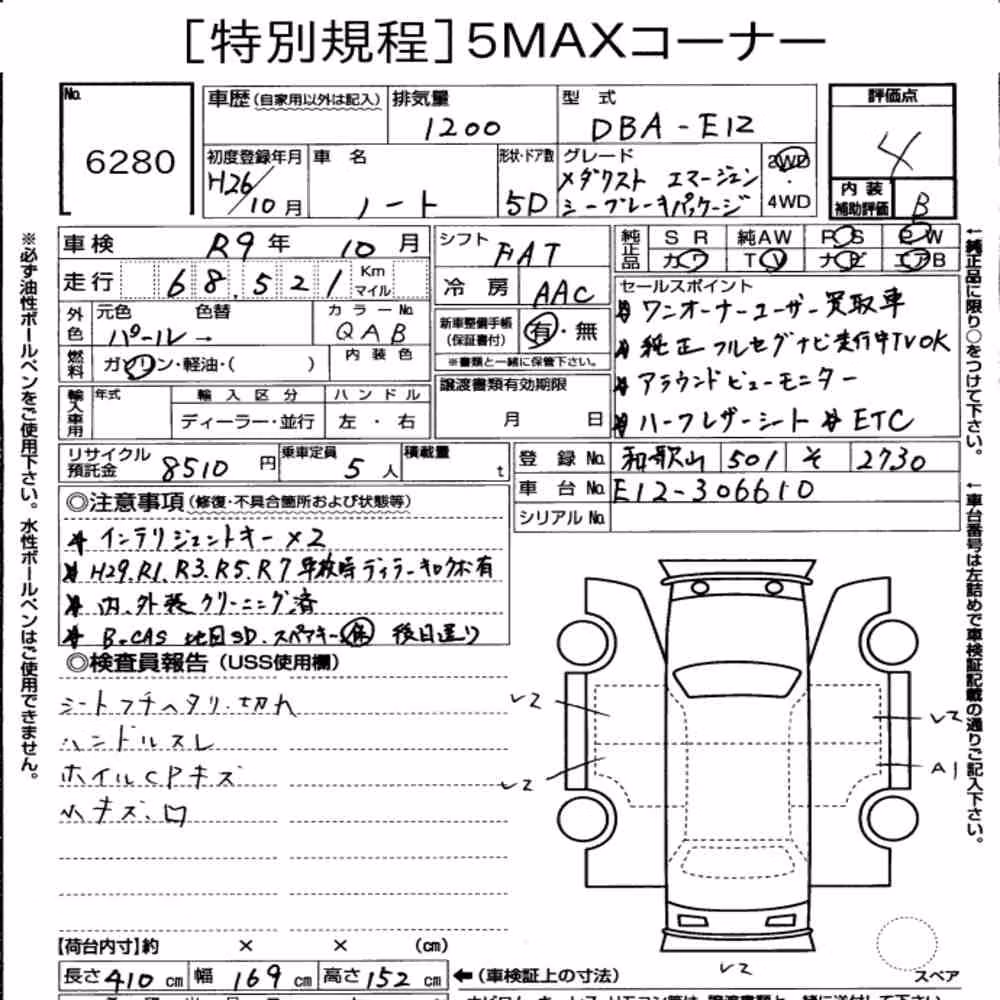 [特別規程]5MAXコーナー
No. 6280
車歴(自家用以外は記入) 排気量 1200 型式 DBA-E12
評価点 4
初度登録年月 H26/10月 車名 ノート 形状・ドア数 5D グレード メダリスト エマージェン シーブレーキパッケージ 2WD・4WD
内装補助評価 B
車検 R9年 10月 シフト FAT
純正品 SR 純AW PS PW
カワ TV ナビ エアB
走行 68,521 Km マイル 冷房 AAC
外色 元色 パール→ 色替 カラーNo. QAB
新車整備手帳(保証書付) 有・無
※書類と一緒に保管下さい。
燃料 ガソリン・軽油・( ) 内装色
セールスポイント
ワンオーナーユーザー買取車
純正フルセグナビ走行中TVOK
アラウンドビューモニター
ハーフレザーシート ETC
輸入車用 年式 輸入区分 ハンドル
ディーラー・並行 左・右
譲渡書類有効期限
月 日
リサイクル預託金 8510円 乗車定員 5人 積載量 t
登録No. 和歌山 501 そ 2730
車台No. E12-306610
シリアルNo.
◎注意事項(修復・不具合箇所および状態等)
インテリジェントキー×2
H29.R1.R3.R5.R7 車検時ディーラーキロクボ有
内.外装クリーニング済
B-CAS 地図SD.スペアキー 後日送り
◎検査員報告(USS使用欄)
シートフチヘタリ.切れ
ハンドルスレ
ホイルCPキズ
小キズ.凹
レス
レス
レス
A1
レス
スペア
【荷台内寸】約 × × (cm)
長さ 410cm 幅 169cm 高さ 152cm ←(車検証上の寸法)
※必ず油性ボールペンをご使用下さい。水性ボールペンはご使用できません。
←純正品に限り○をつけて下さい。
←車台番号は左詰めで車検証記載の通りご記入下さい。